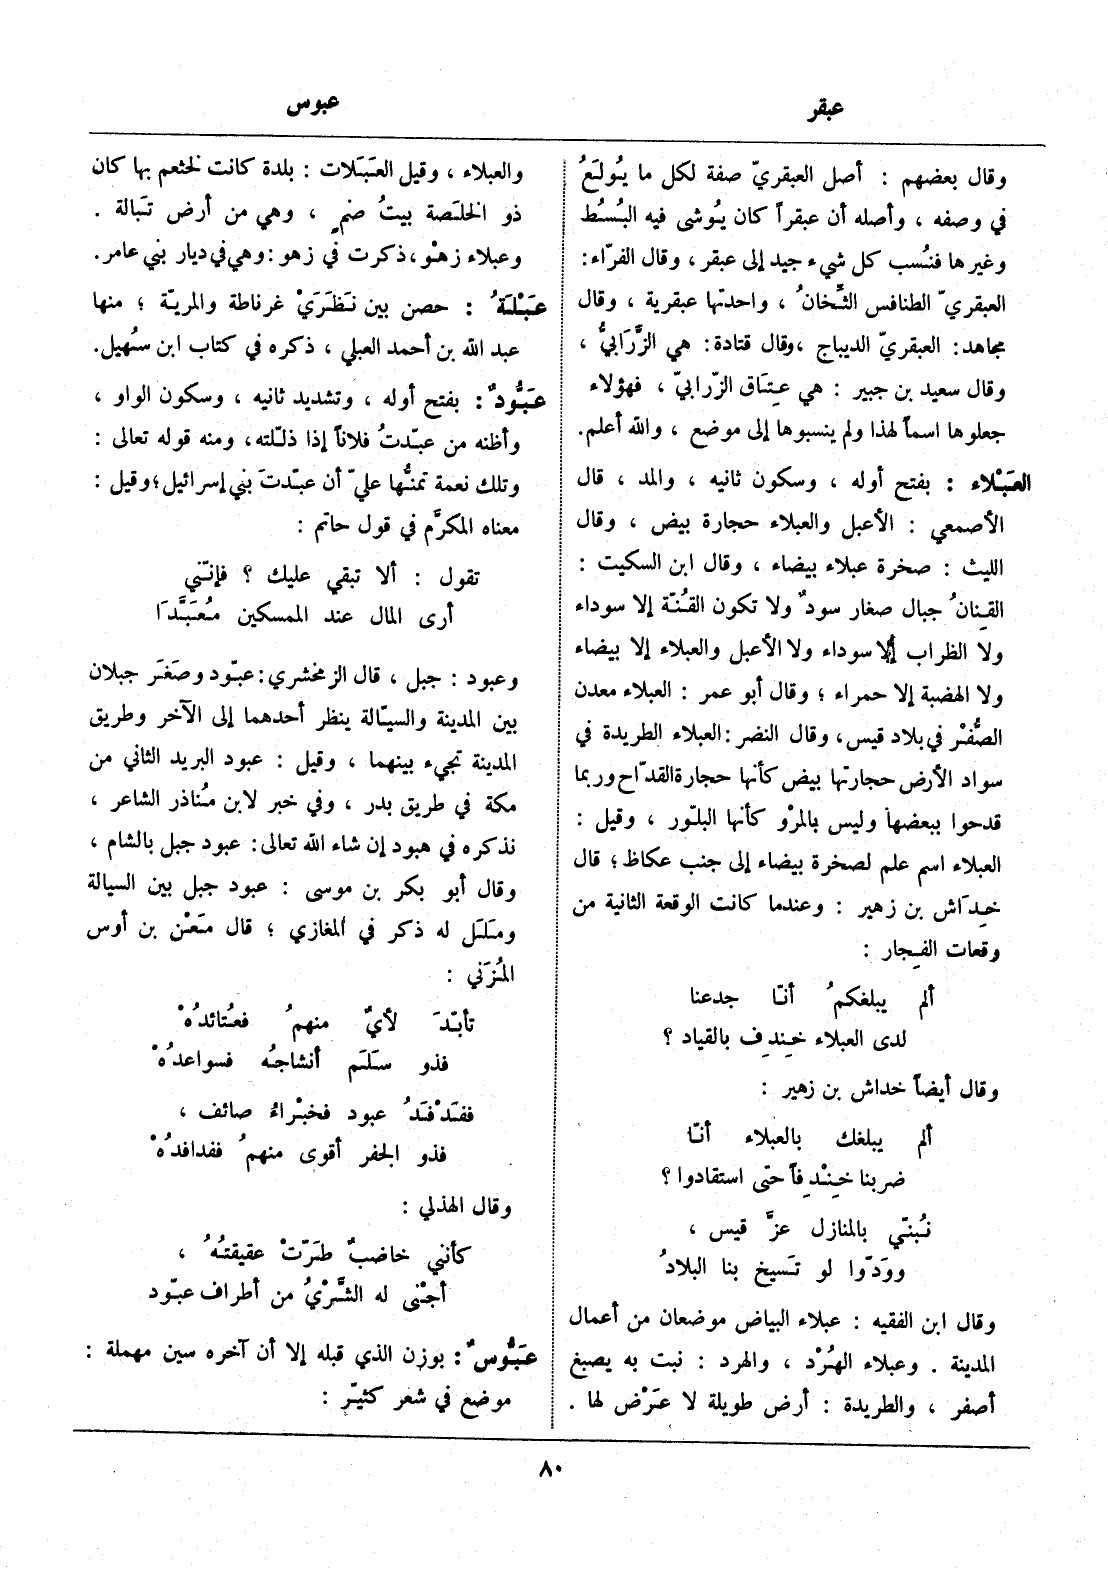 عبقر
عبوس
وقال بعضهم : أصل العبقريّ صفة لكل ما يُولَعُ
في وصفه ، وأصله أن عبقراً كان يُوشى فيه البُسُط
وغيرها فنُسب كل شيء جيد إلى عبقر ، وقال الفرّاء :
العبقريّ الطنافس الثِّخانُ ، واحدتها عبقرية ، وقال
مجاهد : العبقريّ الديباج ، وقال قتادة : هي الزَّرَابيُّ ،
وقال سعيد بن جبير : هي عِتَاق الزّرابيّ ، فهؤلاء
جعلوها اسماً لهذا ولم ينسبوها إلى موضع ، والله أعلم .
العَبْلاء : بفتح أوله ، وسكون ثانيه ، والمد ، قال
الأصمعي : الأعبل والعبلاء حجارة بيض ، وقال
الليث : صخرة عبلاء بيضاء ، وقال ابن السكيت :
القِنانُ جبال صغار سودٌ ولا تكون القُنّة إلا سوداء
ولا الظراب إلا سوداء ولا الأعبل والعبلاء إلا بيضاء
ولا الهضبة إلا حمراء ؛ وقال أبو عمر : العبلاء معدن
الصُّفْر في بلاد قيس ، وقال النضر : العبلاء الطريدة في
سواد الأرض حجارتها بيض كأنها حجارة القدّاح وربما
قدحوا ببعضها وليس بالمرْو كأنها البلّور ، وقيل :
العبلاء اسم علم لصخرة بيضاء إلى جنب عكاظ ؛ قال
خِدَاش بن زهير : وعندما كانت الوقعة الثانية من
وقعات الفِجار :
ألم يبلغكمُ أنّا جدعنا
لدى العبلاء خِندِف بالقياد ؟
وقال أيضاً خداش بن زهير :
ألم يبلغك بالعبلاء أنّا
ضربنا خِنْدِفاً حتى استقادوا ؟
نُبنّي بالمنازل عزَّ قيس ،
وودّوا لو تَسيخ بنا البلادُ
وقال ابن الفقيه : عبلاء البياض موضعان من أعمال
المدينة . وعبلاء الهُرْد ، والهرد : نبت به يصبغ
أصفر ، والطريدة : أرض طويلة لا عَرْض لها .
والعبلاء ، وقيل العَبَلات : بلدة كانت لخثعم بها كان
ذو الخلَصة بيتُ صنمٍ ، وهي من أرض تَبالة .
وعبلاء زهْو ، ذكرت في زهو : وهي في ديار بني عامر .
عَبْلَةُ : حصن بين نَظَرَيْ غرناطة والمريّة ؛ منها
عبد الله بن أحمد العبلي ، ذكره في كتاب ابن سُهيل .
عَبُّودٌ : بفتح أوله ، وتشديد ثانيه ، وسكون الواو ،
وأظنه من عبّدتُ فلاناً إذا ذلّلته ، ومنه قوله تعالى :
وتلك نعمة تمنُّها عليّ أن عبّدتَ بني إسرائيل ؛ وقيل :
معناه المكرَّم في قول حاتم :
تقول : ألا تبقي عليك ؟ فإنّني
أرى المال عند الممسكين مُعَبَّدَا
وعبود : جبل ، قال الزمخشري : عبّود وصَغَر جبلان
بين المدينة والسيّالة ينظر أحدهما إلى الآخر وطريق
المدينة تجيء بينهما ، وقيل : عبود البريد الثاني من
مكة في طريق بدر ، وفي خبر لابن مُناذر الشاعر ،
نذكره في هبود إن شاء الله تعالى : عبود جبل بالشام ،
وقال أبو بكر بن موسى : عبود جبل بين السيالة
ومَلَل له ذكر في المغازي ؛ قال مَعْن بن أوس
المُزَني :
تأبّدَ لأيٌ منهمُ فعُتائدُهْ
فذو سَلَم أنشاجُه فسواعدُهْ
ففَدْفَدُ عبود فخبْراءُ صائف ،
فذو الجفر أقوى منهمُ ففدافدُهْ
وقال الهذلي :
كأنني خاضبٌ طَرّتْ عقيقتُهُ ،
أجْنى له الشَّرْيُ من أطراف عبّود
عَبُّوسٌ : بوزن الذي قبله إلا أن آخره سين مهملة :
موضع في شعر كثيّر :
٨٠